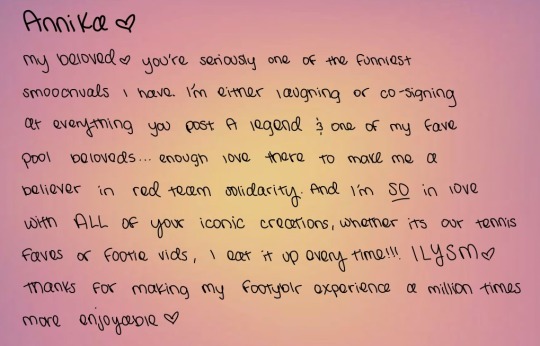 Annika ♡
my beloved♡ you're seriously one of the funniest
smoochuals i have. I'm either laughing or co-signing
at everything you post A legend & one of my fave
pool beloveds... enough love there to make me a
believer in red team solidarity. And I'm SO in love
with ALL of your iconic creations, whether its our tennis
faves or footie vids, I eat it up every time!!! ILYSM♡
thanks for making my footyblr experience a million times
more enjoyable ♡